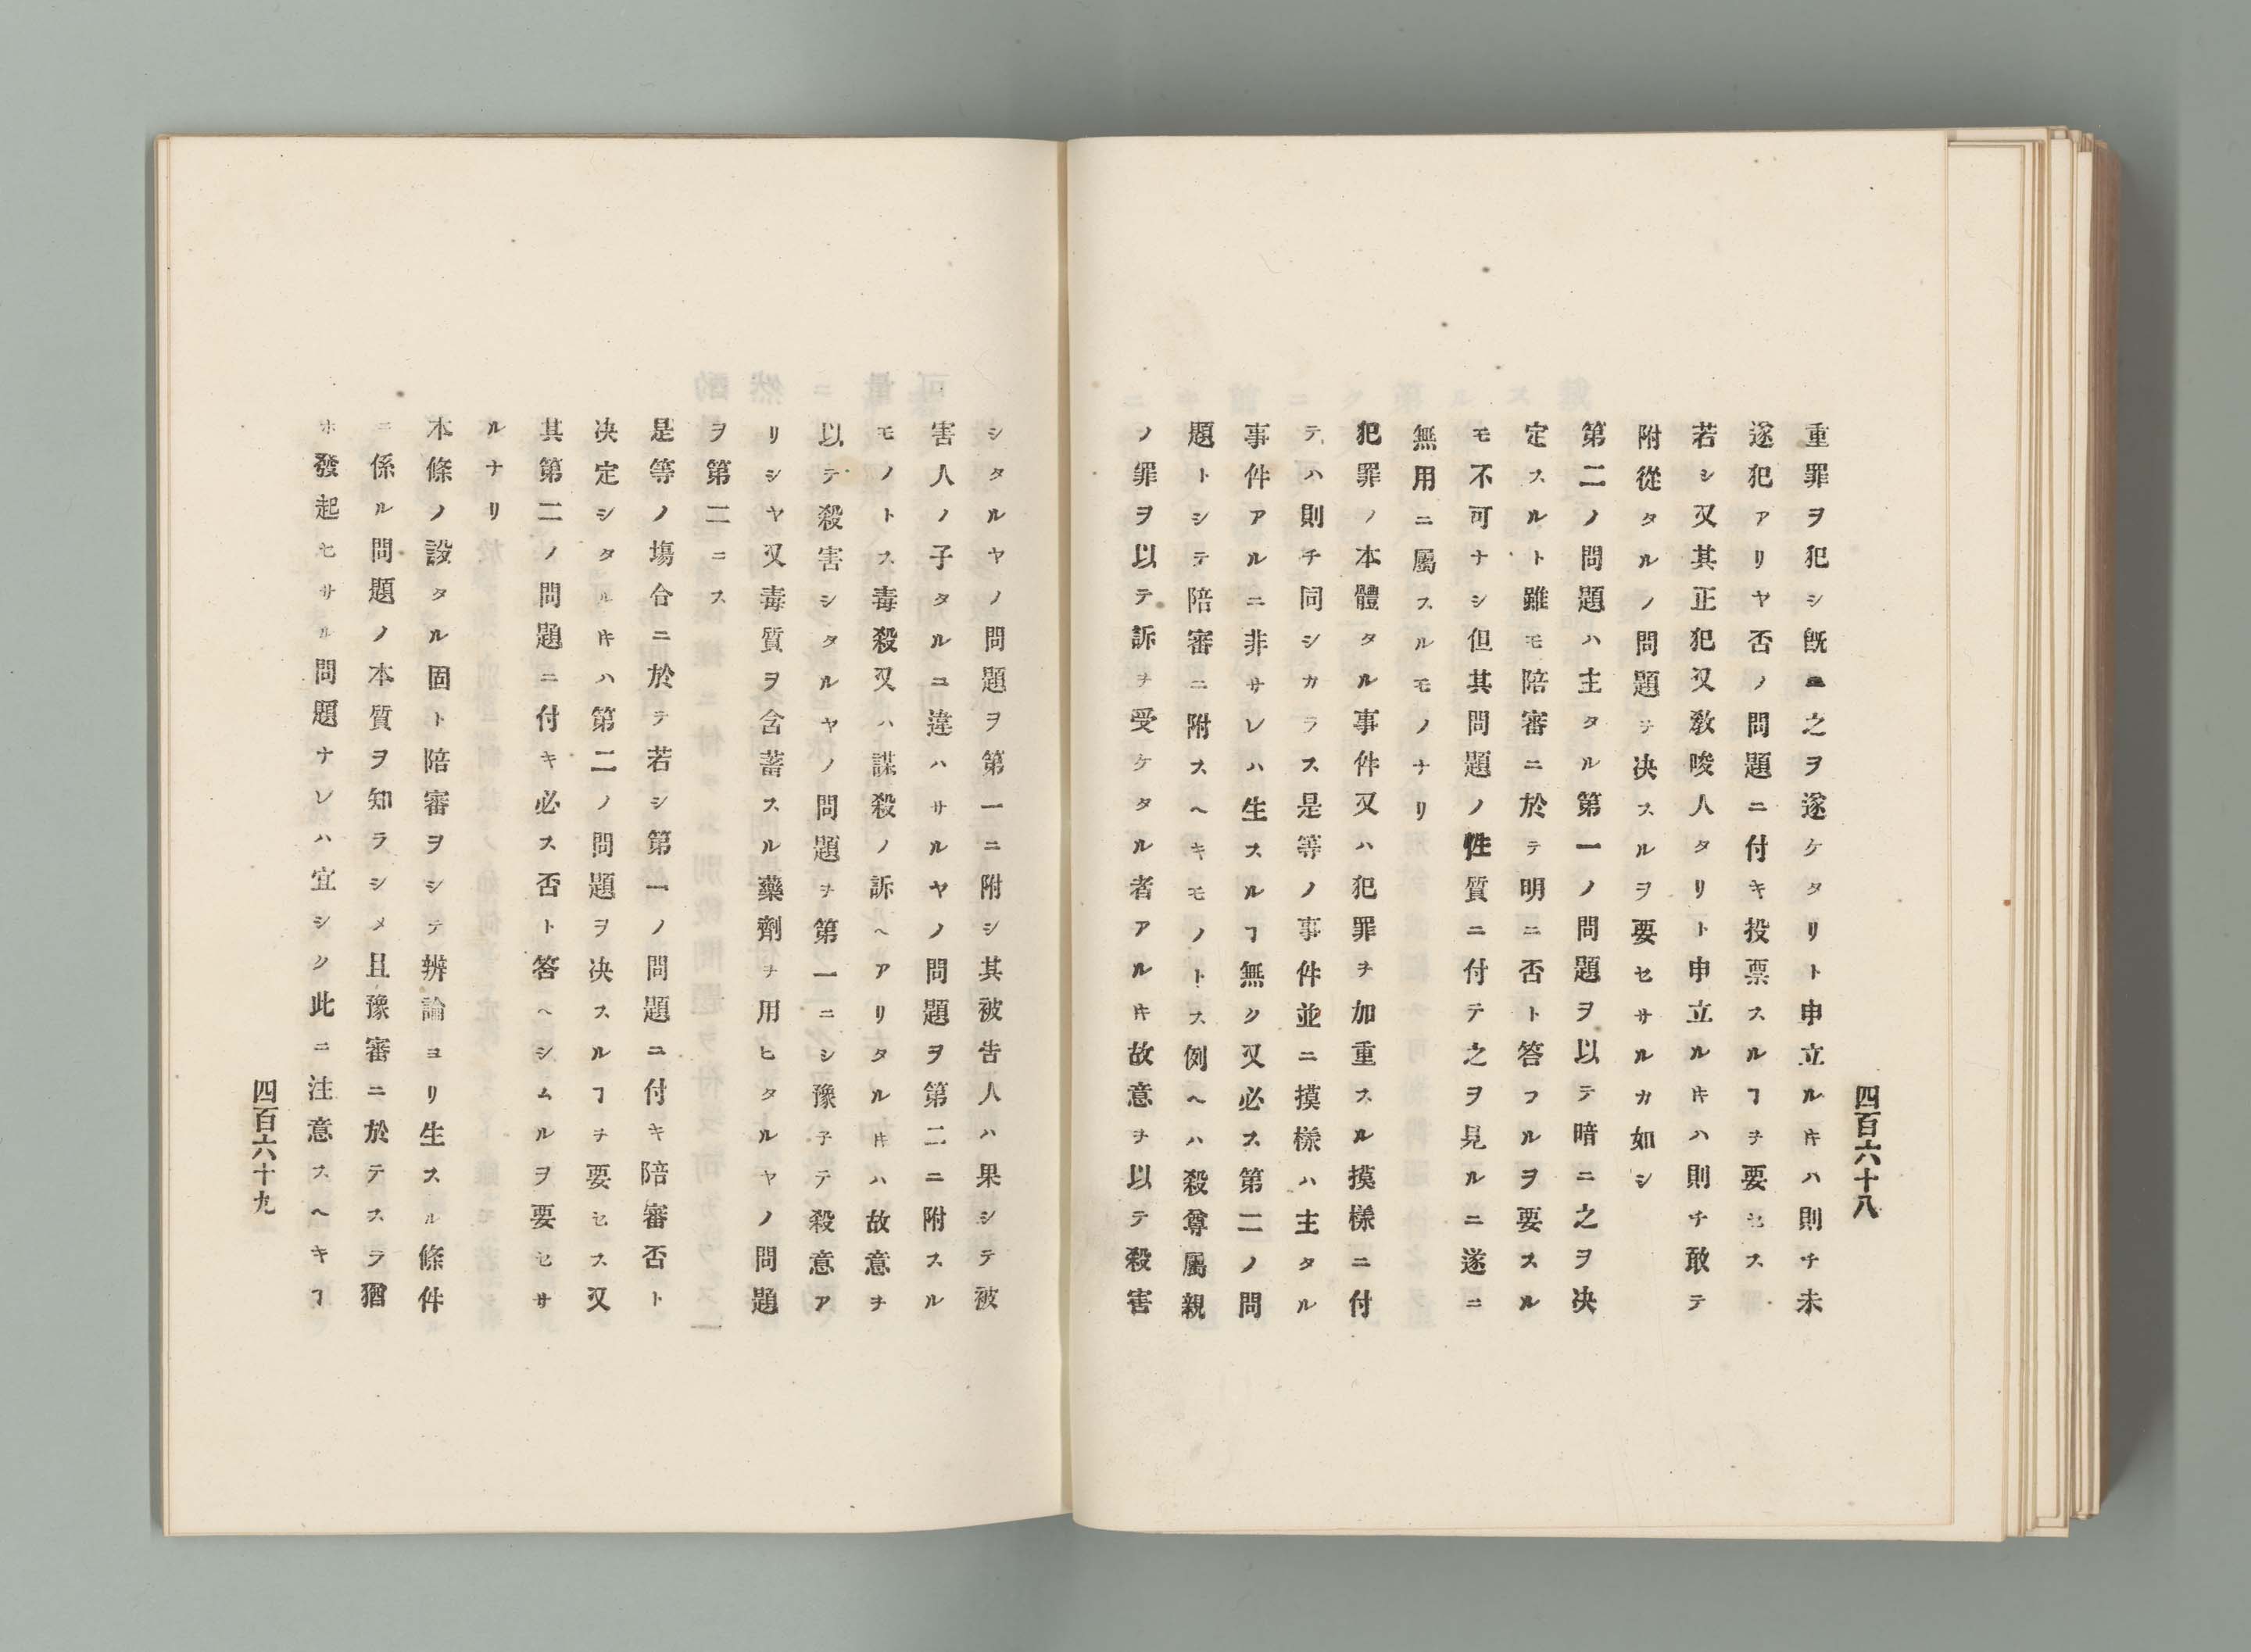 四百六十八
重罪ヲ犯シ旣ニ之ヲ遂ケタリト申立ルキハ則チ未
遂犯アリヤ否ノ問題ニ付キ投票スルヿヲ要セス
若シ又其正犯又敎唆人タリト申立ルキハ則チ敢テ
附從タルノ問題ヲ决スルヲ要セサルカ如シ
第二ノ問題ハ主タル第一ノ問題ヲ以テ暗ニ之ヲ决
定スルト雖モ陪審ニ於テ明ニ否ト答フルヲ要スル
モ不可ナシ但其問題ノ性質ニ付テ之ヲ見ルニ遂ニ
無用ニ屬スルモノナリ
犯罪ノ本體タル事件又ハ犯罪ヲ加重スル摸樣ニ付
テハ則チ同シカラス是等ノ事件並ニ摸樣ハ主タル
事件アルニ非サレハ生スルヿ無ク又必ス第二ノ問
題トシテ陪審ニ附スヘキモノトス例ヘハ殺尊屬親
ノ罪ヲ以テ訴ヲ受ケタル者アルキ故意ヲ以テ殺害
シタルヤノ問題ヲ第一ニ附シ其被告人ハ果シテ被
害人ノ子タルニ違ハサルヤノ問題ヲ第二ニ附スル
モノトス毒殺又ハ謀殺ノ訴ヘアリタルキハ故意ヲ
以テ殺害シタルヤノ問題ヲ第一ニシ豫テ殺意ア
リシヤ又毒質ヲ含蓄スル藥劑ヲ用ヒタルヤノ問題
ヲ第二ニス
是等ノ塲合ニ於テ若シ第一ノ問題ニ付キ陪審否ト
决定シタルキハ第二ノ問題ヲ决スルヿヲ要セス又
其第二ノ問題ニ付キ必ス否ト答ヘシムルヲ要セサ
ルナリ
本條ノ設タル固ト陪審ヲシテ辨論ヨリ生スル條件
ニ係ル問題ノ本質ヲ知ラシメ且豫審ニ於テスラ猶
ホ發起セサル問題ナレハ宜シク此ニ注意スヘキヿ
四百六十九